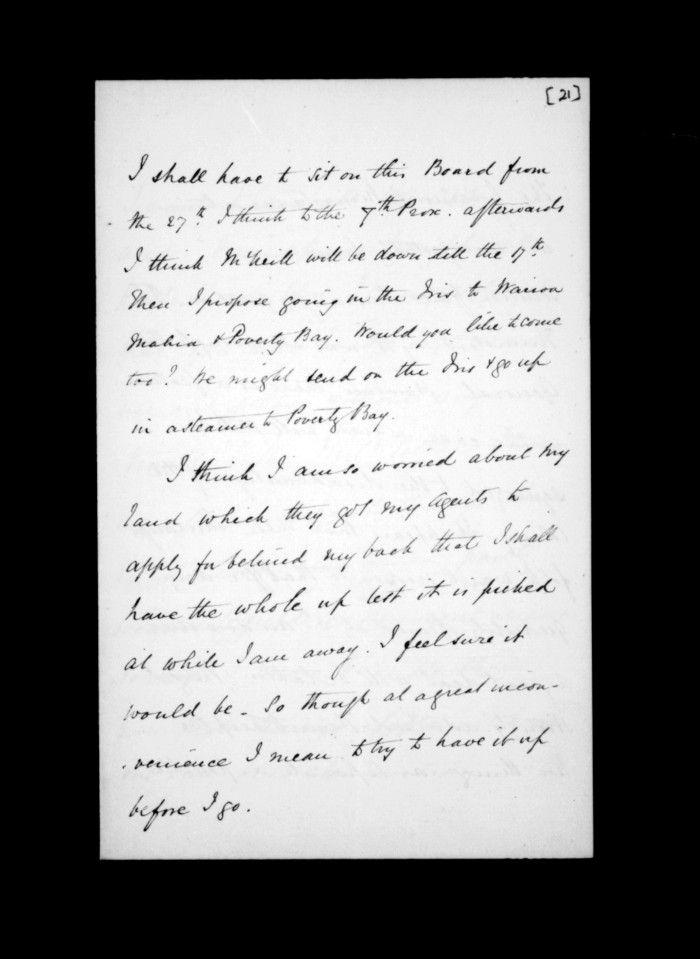 [21]
I shall have to sit on this Board from
the 27th. I think to the 7th Prox. afterwards
I think McNeill will be down till the 17th
Then I propose going in the Iris to Wairoa
Mahia & Poverty Bay. Would you like to come
too? We might send on the Iris & go up
in a steamer to Poverty Bay.
I think I am so worried about my
land which they got my agents to
apply for behind my back that I shall
have the whole up lest it is picked
at while I am away. I feel sure it
would be - So though at a great incon-
venience I mean to try to have it up
before I go.